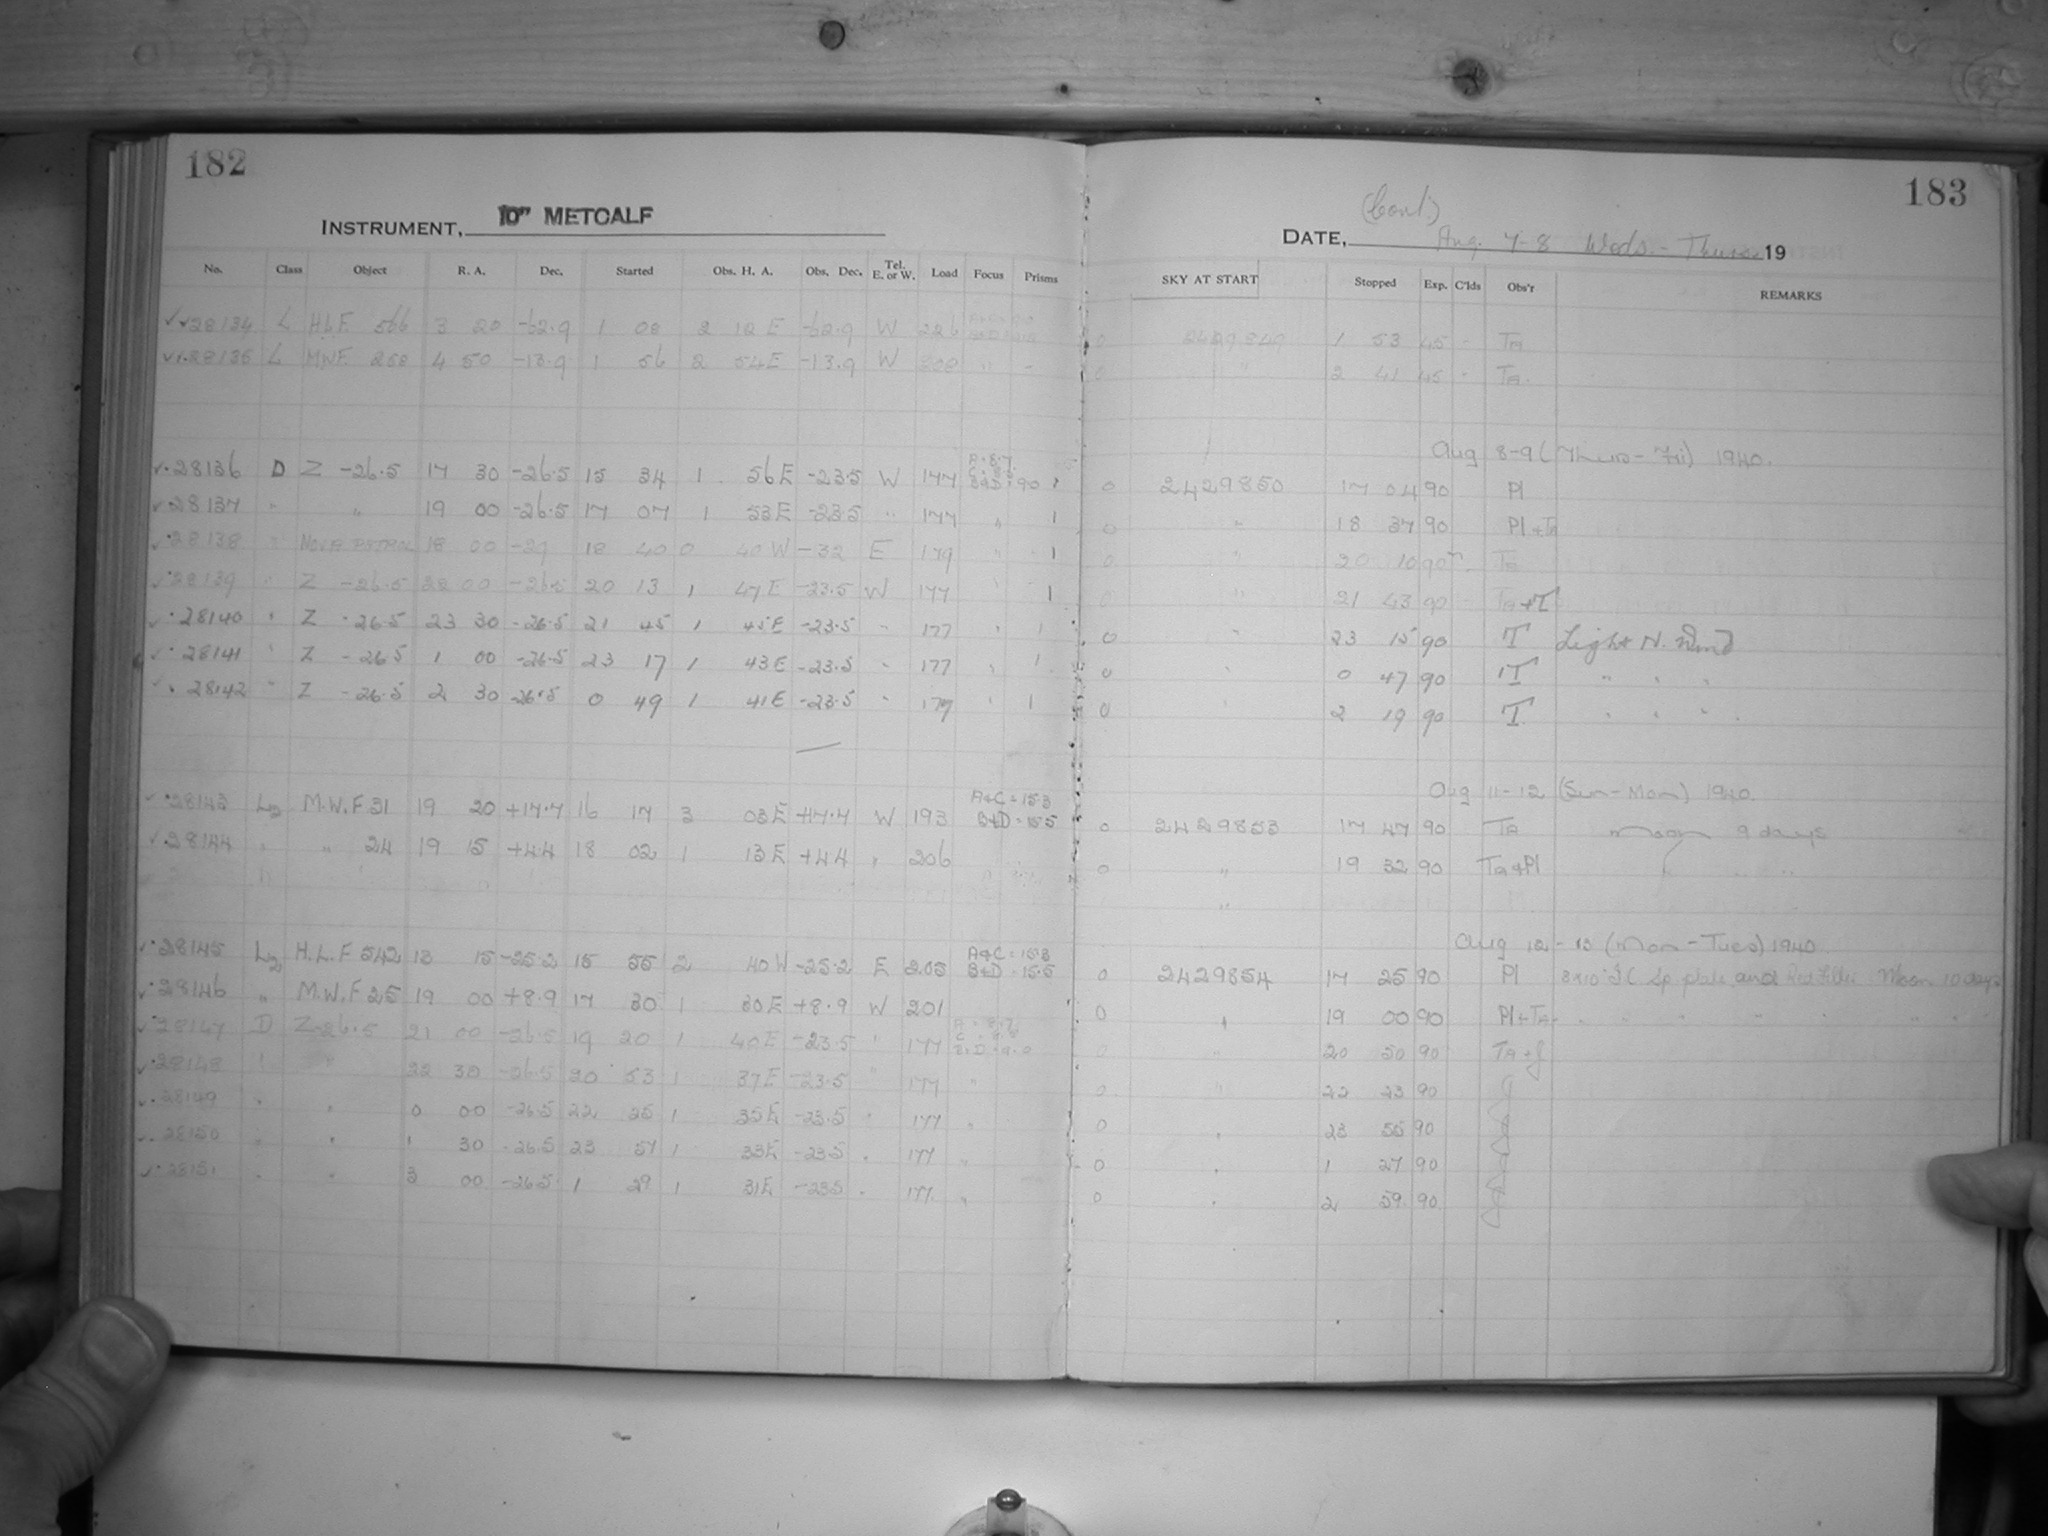 182
INSTRUMENT, 10" METCALF
No. Class Object R. A. Dec. Started Obs. H. A. Obs. Dec. Tel. E. or W. Load Focus Prisms
28134 L H.L.F. 566 3 20 -62.9 1 08 2 12 E -62.9 W 226
28135 L M.W.F. 258 4 50 -13.9 1 56 2 54 E -13.9 W "
28136 D Z -26.5 17 30 -26.5 15 34 1 56 E -23.5 W 177 B+D = 90 1
28137 " " 19 00 -26.5 17 07 1 53 E -23.5 " 177 " 1
28138 " NOVA PATROL 18 00 -27 18 40 0 40 W -32 E 179 " 1
28139 " Z -26.5 22 00 -26.5 20 13 1 47 E -23.5 W 177 " 1
28140 " Z -26.5 23 30 -26.5 21 45 1 45 E -23.5 " 177 " 1
28141 " Z -26.5 1 00 -26.5 23 17 1 43 E -23.5 " 177 " 1
28142 " Z -26.5 2 30 -26.5 0 49 1 41 E -23.5 " " 1
28143 L2 M.W.F 31 19 20 +17.7 16 17 3 03 E +17.7 W 193 A+C = 15.3 B+D = 15.5
28144 " " 24 19 15 +4.4 18 02 1 13 E +4.4 " 206
28145 L2 H.L.F 542 13 15 -25.2 15 55 2 40 W -25.2 E 205 A+C = 15.3 B+D = 15.5
28146 " M.W.F 25 19 00 +8.9 17 30 1 30 E +8.9 W 201
28147 D Z -26.5 21 00 -26.5 19 20 1 40 E -23.5 " 177
28148 " " 22 30 -26.5 20 53 1 37 E -23.5 " 177 "
28149 " " 0 00 -26.5 22 25 1 35 E -23.5 " 177 "
28150 " " 1 30 -26.5 23 57 1 33 E -23.5 " 177 "
28151 " " 3 00 -26.5 1 29 1 31 E -23.5 " 177 "
183
(Cont.)
DATE, Aug. 7-8 Weds. - Thurs. 19
SKY AT START Stopped Exp. C'lds Obs'r REMARKS
0 2429849 1 53 45 - Ta
0 " 2 41 45 - Ta.
Aug 8-9 (Thurs - Fri) 1940.
0 2429850 17 04 90 Pl
0 " 18 37 90 Pl + Ta
0 " 20 10 90 Ta
0 " 21 43 90 Ta + T
0 " 23 15 90 T Light N. Wind
0 " 0 47 90 T " " "
0 " 2 19 90 T " " "
Aug 11-12 (Sun-Mon) 1940.
0 2429853 17 47 90 Ta Moon 9 days
0 " 19 32 90 Ta + Pl " " "
"
Aug 12-13 (Mon-Tues) 1940.
0 2429854 17 25 90 Pl 8x10 plate and Red Filter Moon 10 days
0 " 19 00 90 Pl + Ta " " " " " "
0 " 20 50 90 Ta + J
0 " 22 23 90
0 " 23 55 90
0 " 1 27 90
0 " 2 59 90